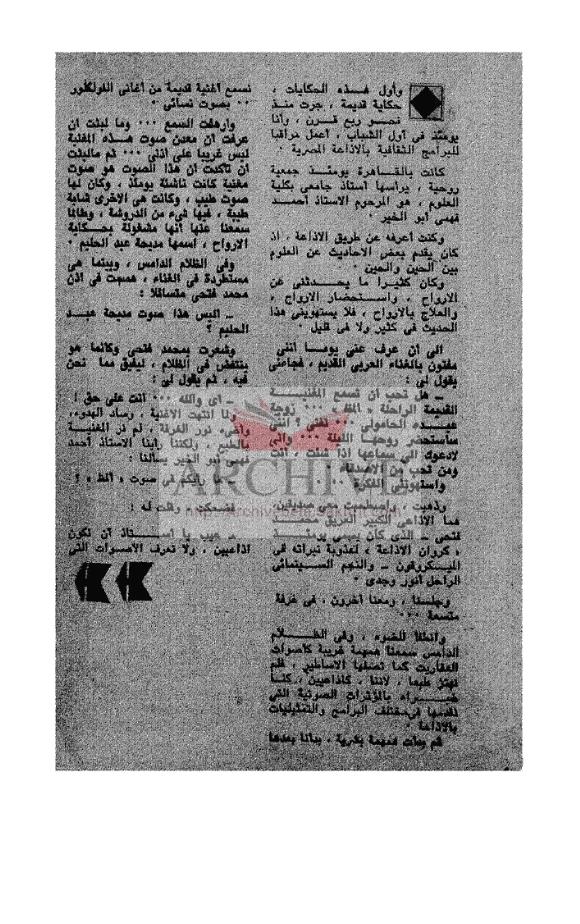 وأول هذه الحكايات ،
حكاية قديمة ، جرت منذ
نحو ربع قرن ، وأنا
يومئذ في أول الشباب ، أعمل مراقبا
للبرامج الثقافية بالاذاعة المصرية .
كانت بالقاهرة يومئذ جمعية
روحية ، يرأسها أستاذ جامعي بكلية
العلوم ، هو المرحوم الاستاذ أحمد
فهمي أبو الخير .
وكنت أعرفه عن طريق الاذاعة ، اذ
كان يقدم بعض الاحاديث عن العلوم
بين الحين والحين .
وكان كثيرا ما يحدثني عن
الارواح ، واستحضار الارواح ،
والعلاج بالارواح ، فلا يستهويني هذا
الحديث في كثير ولا في قليل .
الى أن عرف عني يوما أنني
مفتون بالغناء العربي القديم ، فجاءني
يقول لي :
ـ هل تحب أن تسمع المغنية
القديمة الراحلة « ألمظ » ... زوجة
عبده الحامولي ... أنني
سأستحضر روحها الليلة ... واني
لادعوك الى سماعها اذا شئت ، أنت
ومن تحب من الاصدقاء
واستهوتني الفكرة .
وذهبت ، واصطحبت معي صديقين،
هما الاذاعي الكبير العريق محمد
فتحي ـ الذي كان يسمى يومئذ
« كروان الاذاعة » لعذوبة نبراته في
الميكروفون ـ والنجم السينمائي
الراحل أنور وجدي .
وجلسنا ، ومعنا آخرون ، في غرفة
متسعة ...
وانطفأ الضوء ، وفي الظلام
الدامس سمعنا همهمة غريبة كأصوات
العفاريت كما تصفها الاساطير ، فلم
نهتز طبعا ، لاننا ، كاذاعيين ، كنا
خبراء بالمؤثرات الصوتية التي
نقدمها في مختلف البرامج والتمثيليات
بالاذاعة .
ثم بدأت همهمة بشرية ، بدأنا بعدها
نسمع أغنية قديمة من أغاني الفولكلور
.. بصوت نسائي .
وأرهفت السمع ... وما لبثت أن
عرفت أن معدن صوت هذه المغنية
ليس غريبا على أذني ... ثم مالبثت
أن تأكدت أن هذا الصوت هو صوت
مغنية كانت ناشئة يومئذ ، وكان لها
صوت طيب ، وكانت هي الاخرى شابة
طيبة ، فيها شيء من الدروشة ، وطالما
سمعنا عنها أنها مشغولة بحكاية
الارواح ، اسمها مديحة عبد الحليم .
وفي الظلام الدامس ، وبينما هي
مستطردة في الغناء ، همست في أذن
محمد فتحي متسائلا :
ـ أليس هذا صوت مديحة عبد
الحليم ؟
وشعرت بمحمد فتحي وكأنما هو
ينتفض في الظلام ، ليفيق مما نحن
فيه ، ثم يقول لي :
ـ أي والله ... أنت على حق !
ولما انتهت الاغنية ، وساد الهدوء،
وأضيء نور الغرفة ، لم نر المغنية
بالطبع ، ولكننا رأينا الاستاذ أحمد
فهمي أبو الخير يسألنا :
ـ ما رأيكم في صوت « ألمظ » ؟
فضحكت ، وقلت له :
ـ عيب يا أستاذ أن نكون
اذاعيين ، ولا نعرف الاصوات التي
ARCHIVE